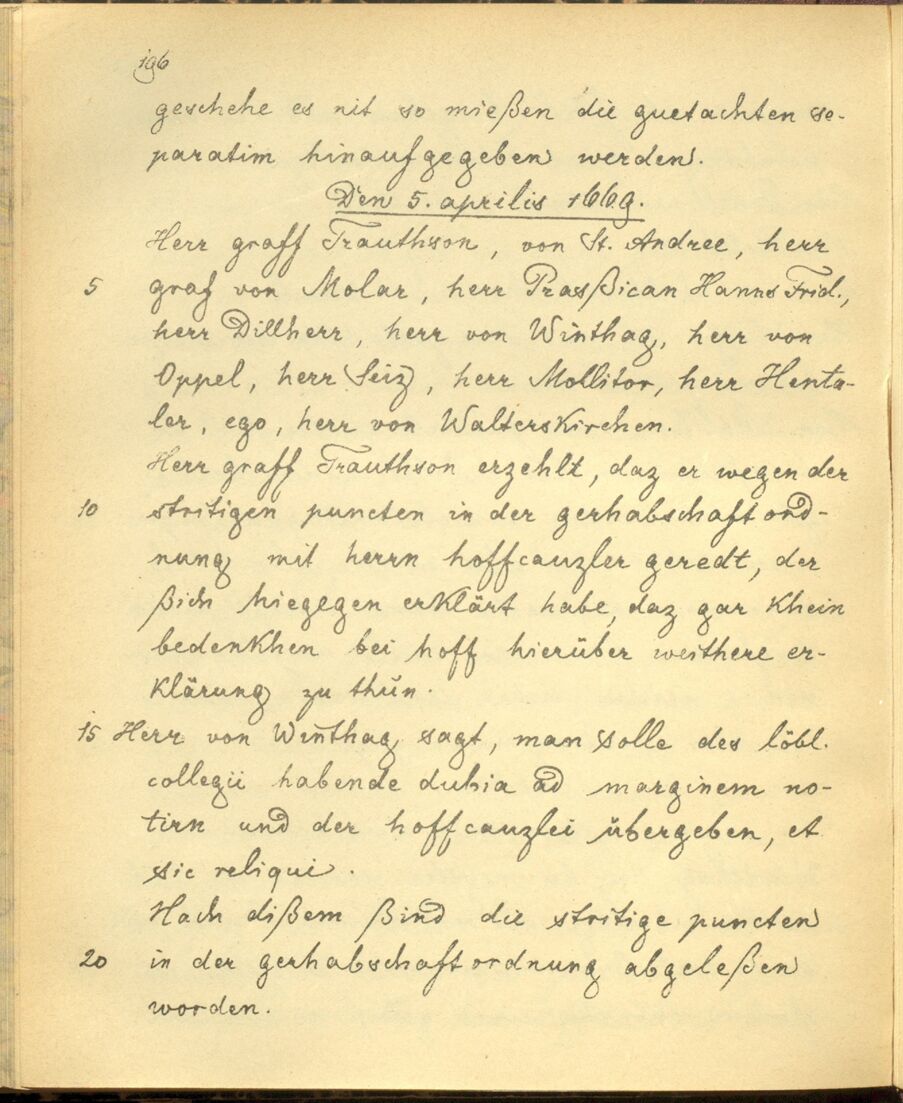 196
geschehe es nit so mießen die guetachten se-
paratim hinaufgegeben werden.
Den 5. aprilis 1669.
Herr graff Trauthson, von St. Andree, herr
5 graf von Molar, herr Prasßican Hanns Frid.,
herr Dillherr, herr von Winthag, herr von
Oppel, herr Seiz, herr Mollitor, herr Henta-
ler, ego, herr von Walterskirchen.
Herr graff Trauthson erzehlt, daz er wegen der
10 stritigen puncten in der gerhabschaftord-
nung mit herrn hoffcanzler geredt, der
ßich hiegegen erklärt habe, daz gar khein
bedenkhen bei hoff hierüber weithere er-
klärung zu thun.
15 Herr von Winthag sagt, man solle des löbl.
collegii habende dubia ad marginem no-
tirn und der hoffcanzlei übergeben, et
sic reliqui.
Nach dißem ßind die stritige puncten
20 in der gerhabschaftordnung abgeleßen
worden.